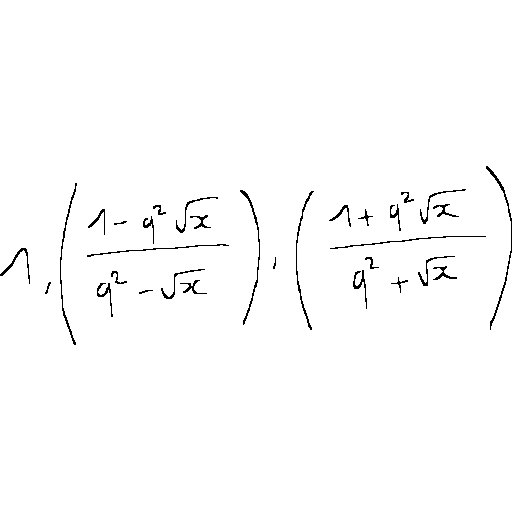 $1, \left( \frac{1 - q^2 \sqrt{x}}{q^2 - \sqrt{x}} \right), \left( \frac{1 + q^2 \sqrt{x}}{q^2 + \sqrt{x}} \right)$